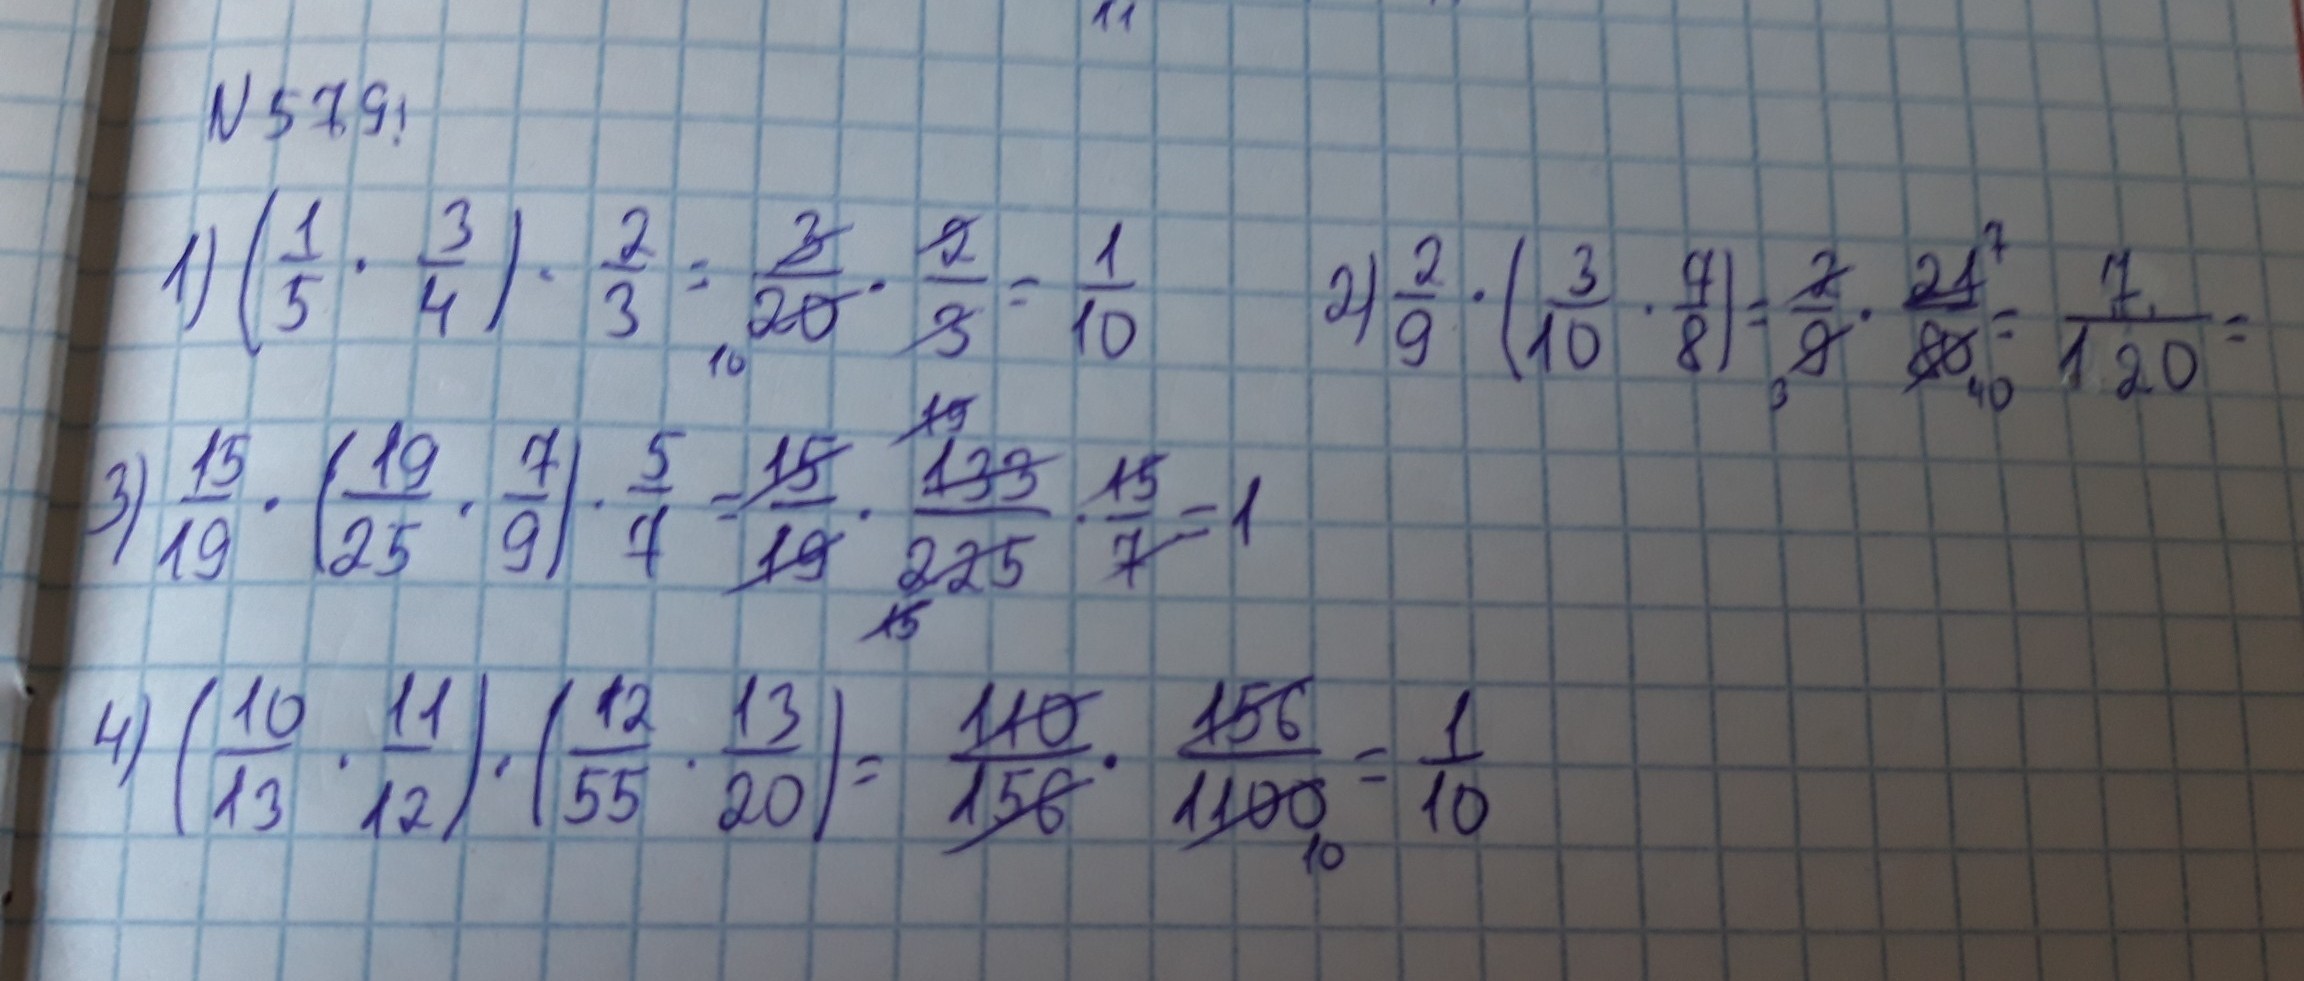 11
N 579!
1) (1/5 · 3/4) · 2/3 = 3/20 10 · 2/3 = 1/10 2) 2/9 · (3/10 · 7/8) = 2/9 3 · 21 7/80 40 = 7/120 =
3) 15/19 · (19/25 · 7/9) · 5/7 = 15/19 · 19 133/225 15 · 15/7 = 1
4) (10/13 · 11/12) · (12/55 · 13/20) = 110/156 · 156/1100 10 = 1/10